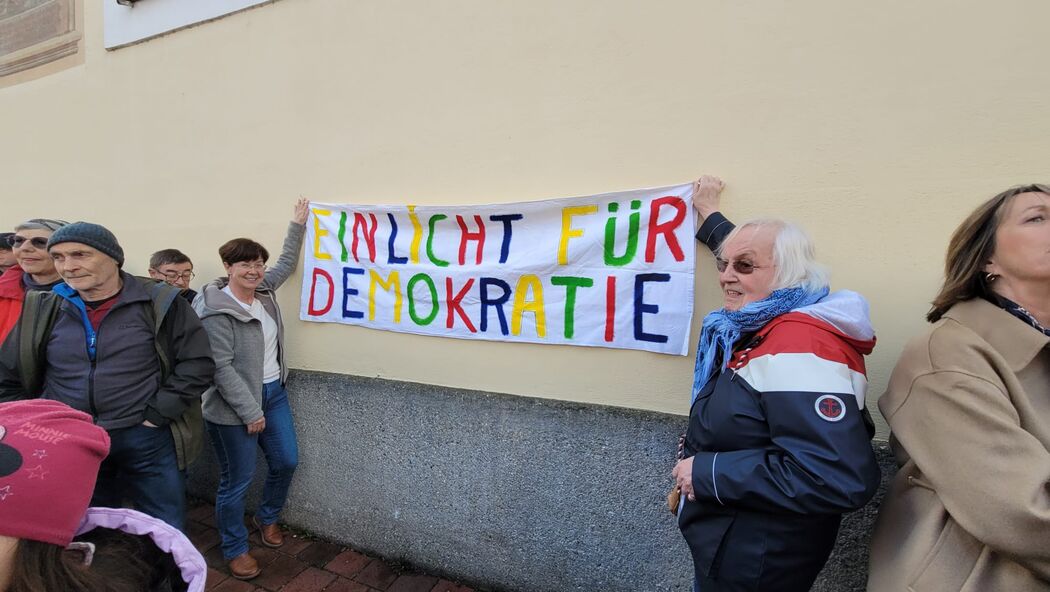 EIN LICHT FÜR
DEMOKRATIE
MINNIE
MOUSE